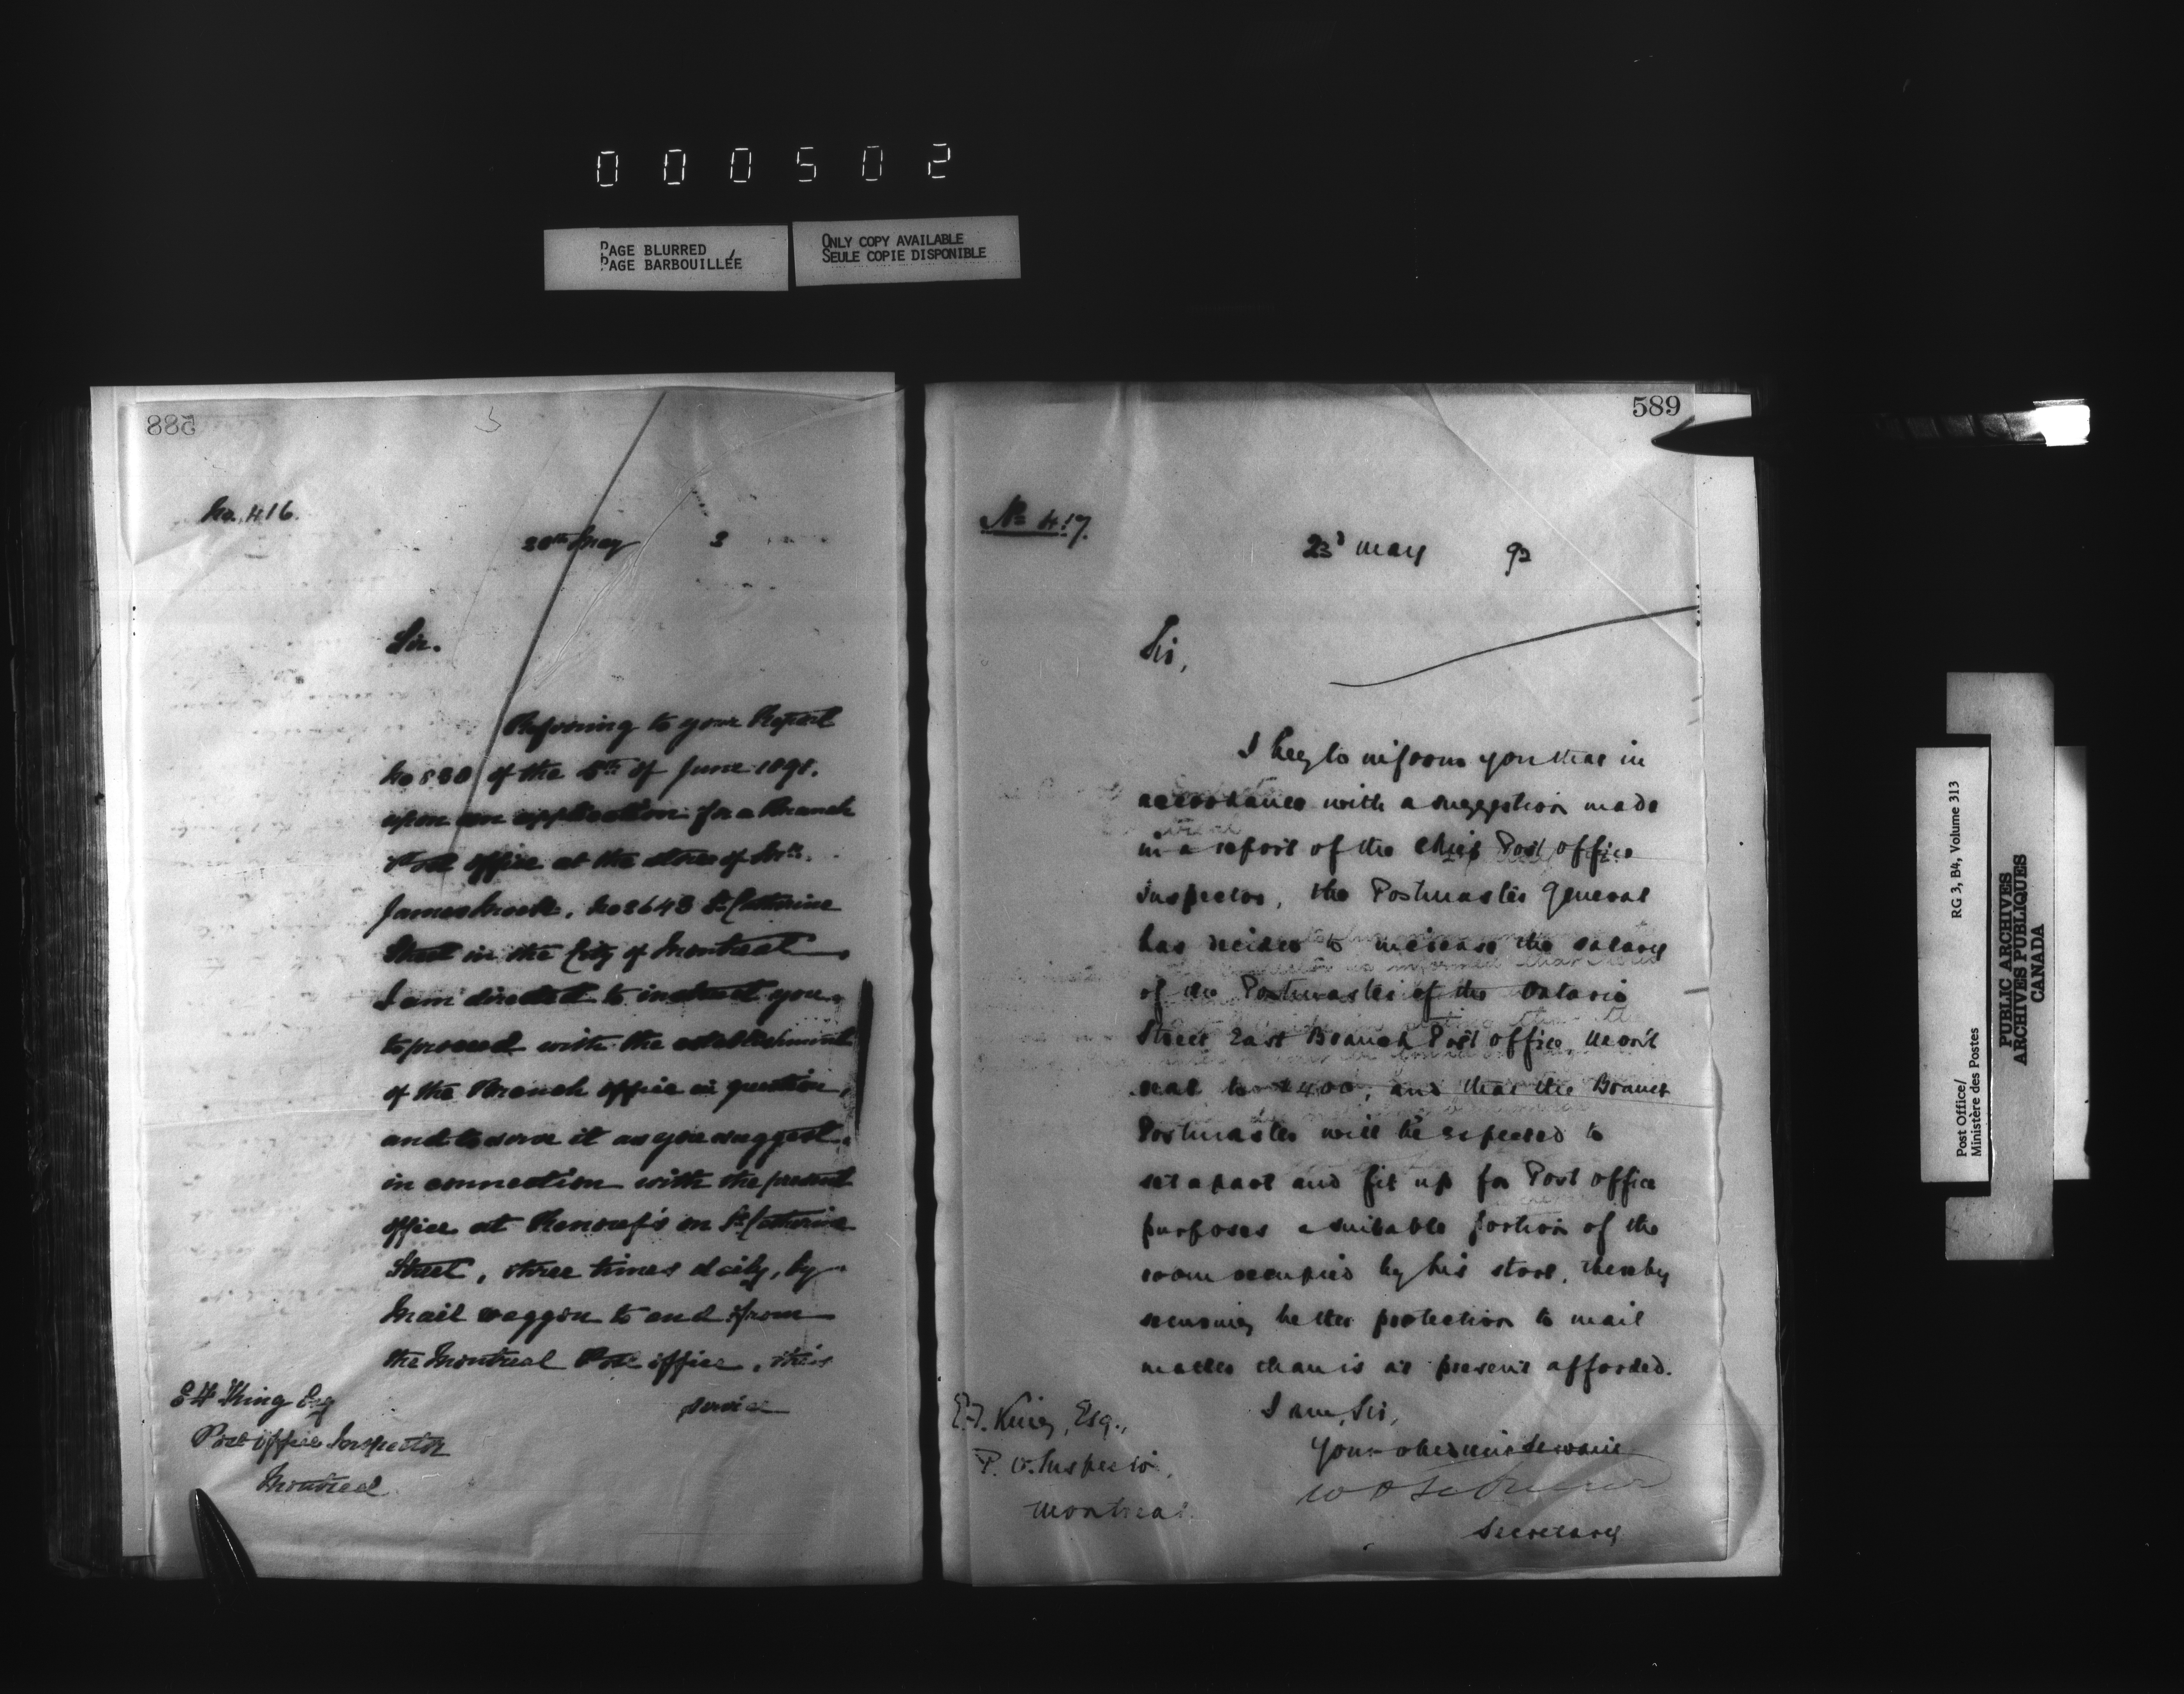 000502
PAGE BLURRED
PAGE BARBOUILLÉE
ONLY COPY AVAILABLE
SEULE COPIE DISPONIBLE
588
No. 416.
20th May 2
Sir.
Referring to your Report
No 520 of the 5th of June 1891.
upon an application for a Branch
Post office at the store of Mr.
James No 2643 St. Catherine
Street in the City of Montreal
I am directed to instruct you
to proceed with the establishment
of the Branch office in question,
and to serve it as you suggest
in connection with the present
office at Renouf's on St. Catherine
Street, three times daily, by
Mail waggon to and from
the Montreal Post office, this
service
E F King Esq
Post Office Inspector
Montreal
589
No 417.
23d May 92
Sir,
I beg to inform you that in
accordance with a suggestion made
in a report of the Chief Post Office
Inspector, the Postmaster General
has decided to increase the salary
of the Postmaster of the Ontario
Street East Branch Post Office, Mont
real to $400, and that the Branch
Postmaster will be expected to
set apart and fit up for Post Office
purposes a suitable portion of the
room occupied by his store, thereby
securing better protection to mail
matter than is at present afforded.
I am, Sir,
Your obedient Servant
Secretary
E.F. King, Esq.,
P. O. Inspector,
Montreal.
Post Office/
Ministère des Postes
RG 3, B4, Volume 313
PUBLIC ARCHIVES
ARCHIVES PUBLIQUES
CANADA